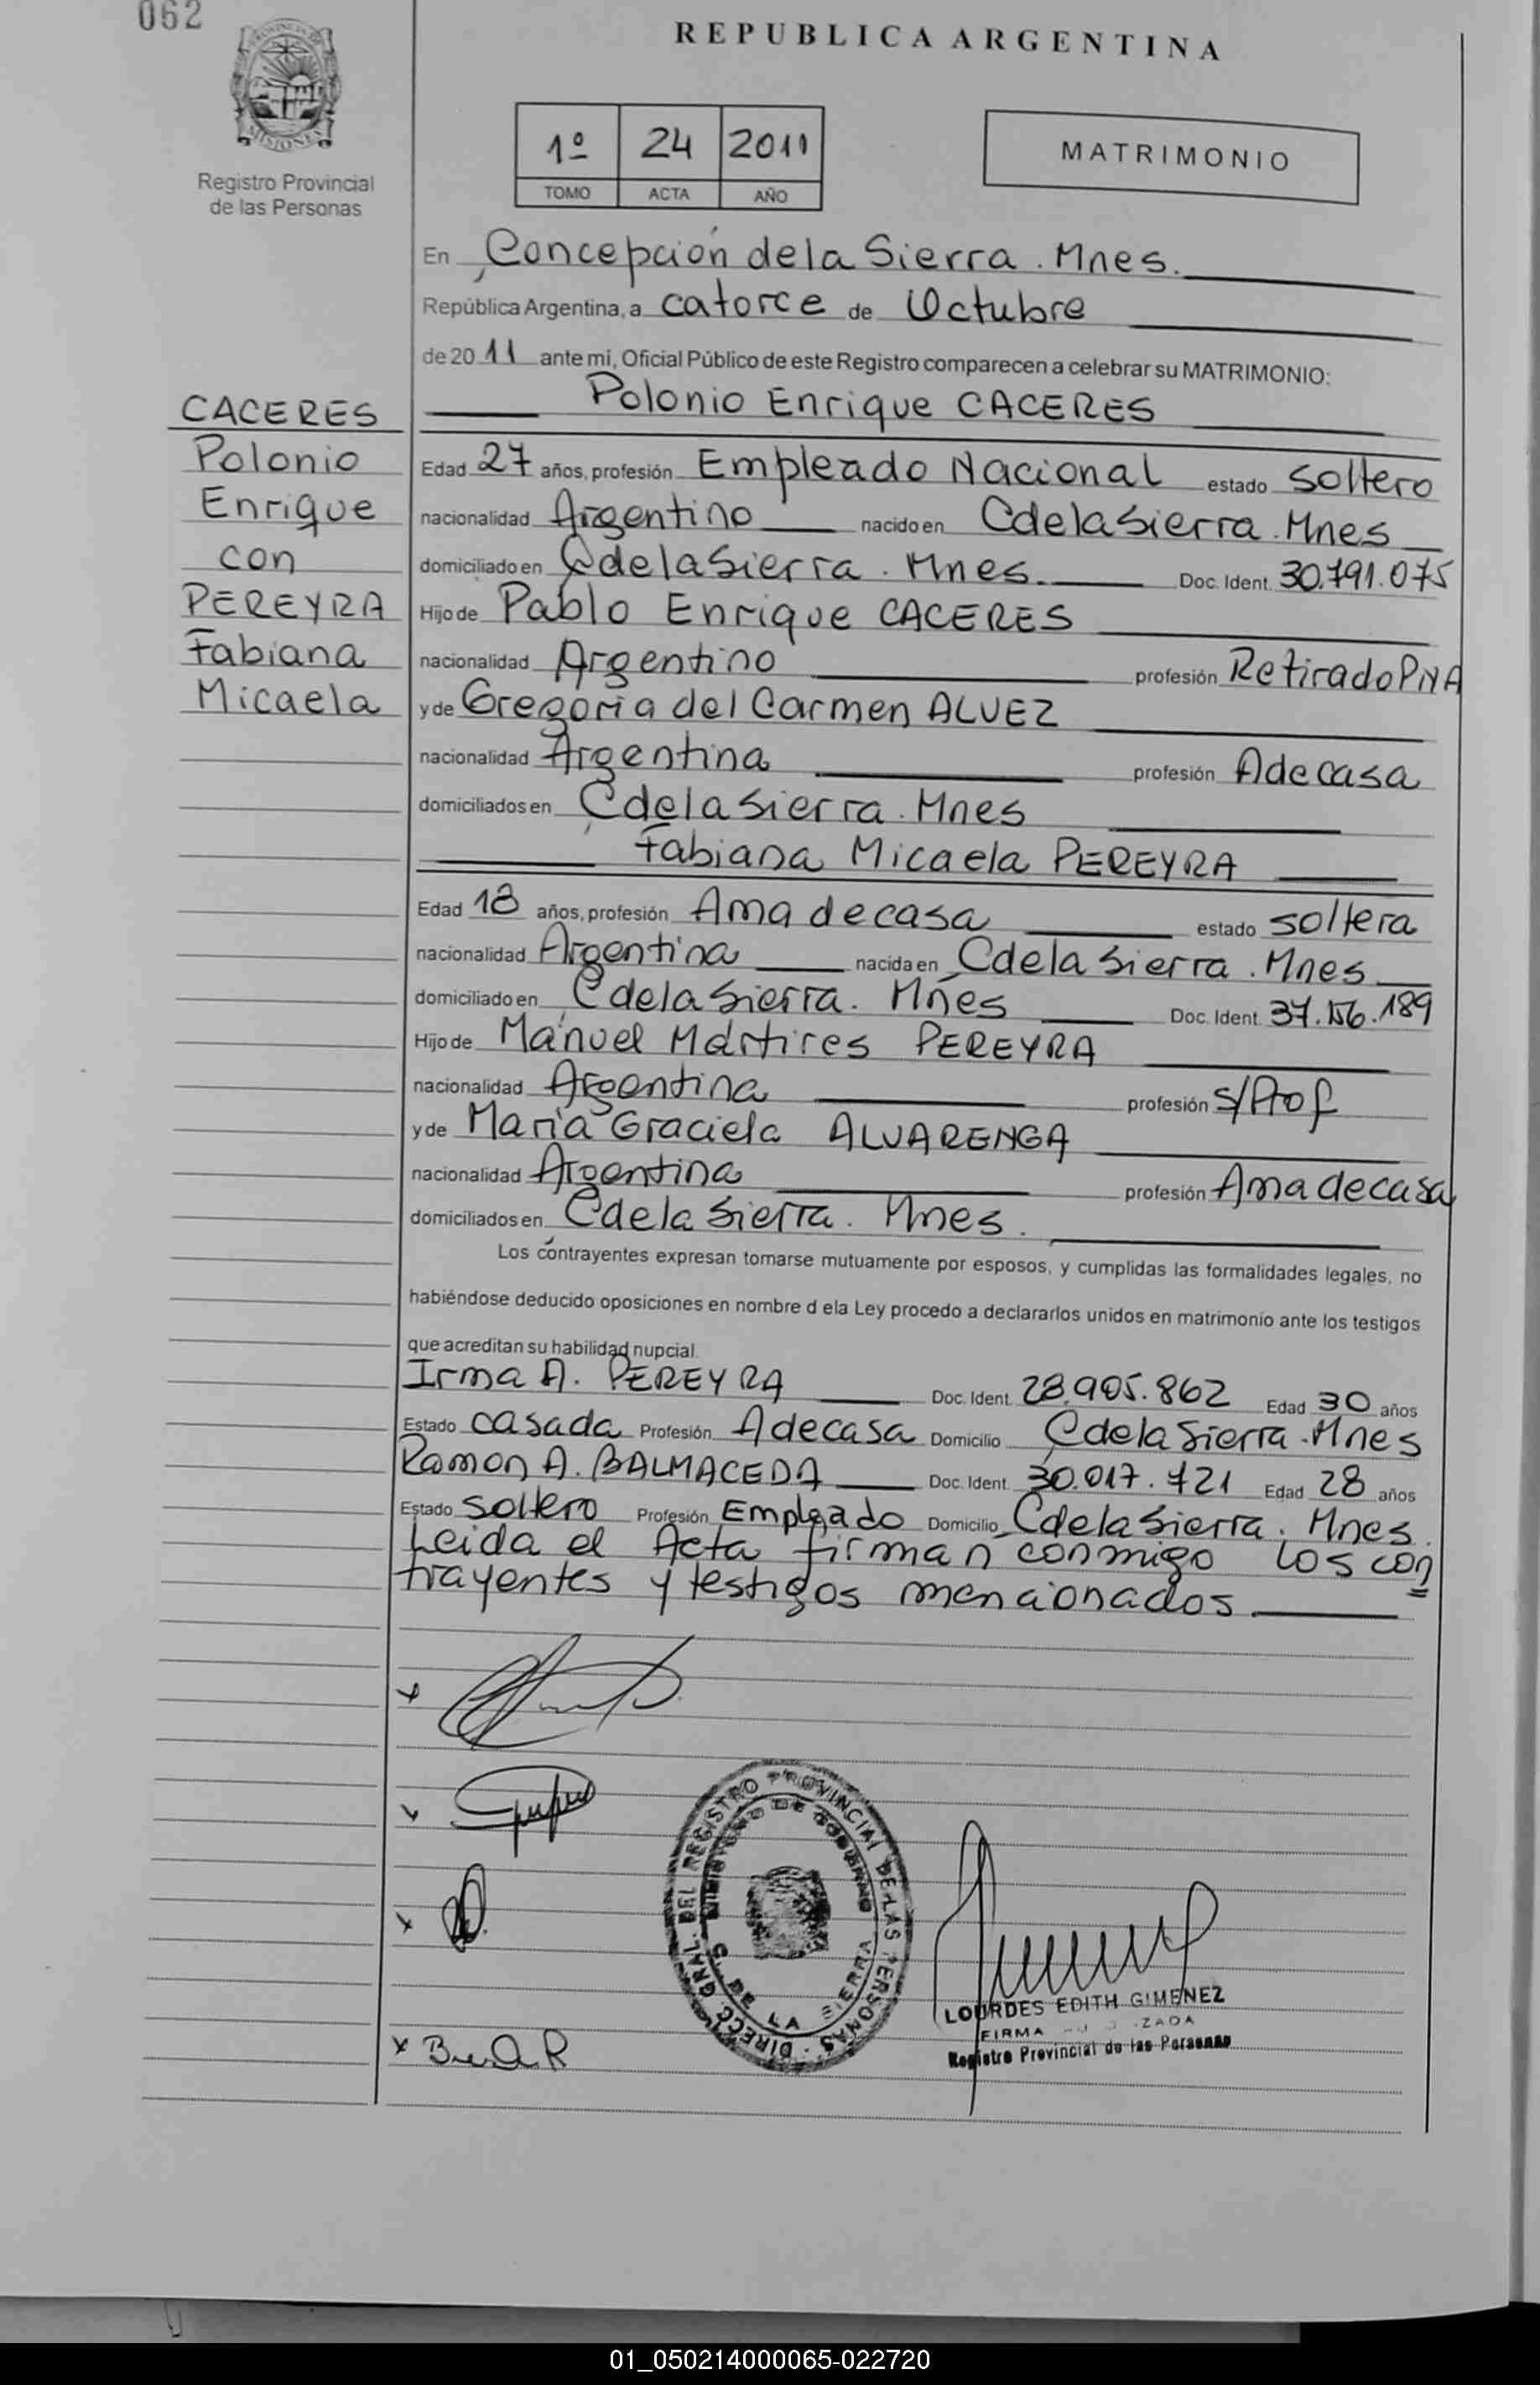 062
REPUBLICA ARGENTINA
MISIONES
Registro Provincial
de las Personas
1º 24 2011
TOMO ACTA AÑO
MATRIMONIO
En Concepción de la Sierra. Mnes.
República Argentina, a catorce de Octubre
de 20 11 ante mi, Oficial Público de este Registro comparecen a celebrar su MATRIMONIO:
Polonio Enrique CACERES
CACERES
Polonio
Enrique
con
PEREYRA
Fabiana
Micaela
Edad 27 años, profesión Empleado Nacional estado soltero
nacionalidad Argentino nacido en CdelaSierra. Mnes
domiciliado en CdelaSierra. Mnes. Doc. Ident. 30.791.075
Hijo de Pablo Enrique CACERES
nacionalidad Argentino profesión Retirado PNA
y de Gregoria del Carmen ALVEZ
nacionalidad Argentina profesión Adecasa
domiciliados en CdelaSierra. Mnes
Fabiana Micaela PEREYRA
Edad 18 años, profesión Ama de casa estado soltera
nacionalidad Argentina nacida en CdelaSierra. Mnes
domiciliado en CdelaSierra. Mnes Doc. Ident. 37.156.189
Hijo de Manuel Mártires PEREYRA
nacionalidad Argentina profesión s/Prof
y de María Graciela ALVARENGA
nacionalidad Argentina profesión Ama de casa
domiciliados en CdelaSierra. Mnes.
Los contrayentes expresan tomarse mutuamente por esposos, y cumplidas las formalidades legales, no
habiéndose deducido oposiciones en nombre d ela Ley procedo a declararlos unidos en matrimonio ante los testigos
que acreditan su habilidad nupcial.
Irma A. PEREYRA Doc. Ident. 28.905.862 Edad 30 años
Estado casada Profesión Adecasa Domicilio CdelaSierra. Mnes
Ramon A. BALMACEDA Doc. Ident. 30.017.721 Edad 28 años
Estado soltero Profesión Empleado Domicilio CdelaSierra. Mnes.
Leida el Acta firman conmigo los con
trayentes y testigos mencionados
DIRECC. GRAL. DEL REGISTRO PROVINCIAL DE LAS PERSONAS
C. DE LA SIERRA
LOURDES EDITH GIMENEZ
FIRMA
Registro Provincial de las Personas
01_050214000065-022720